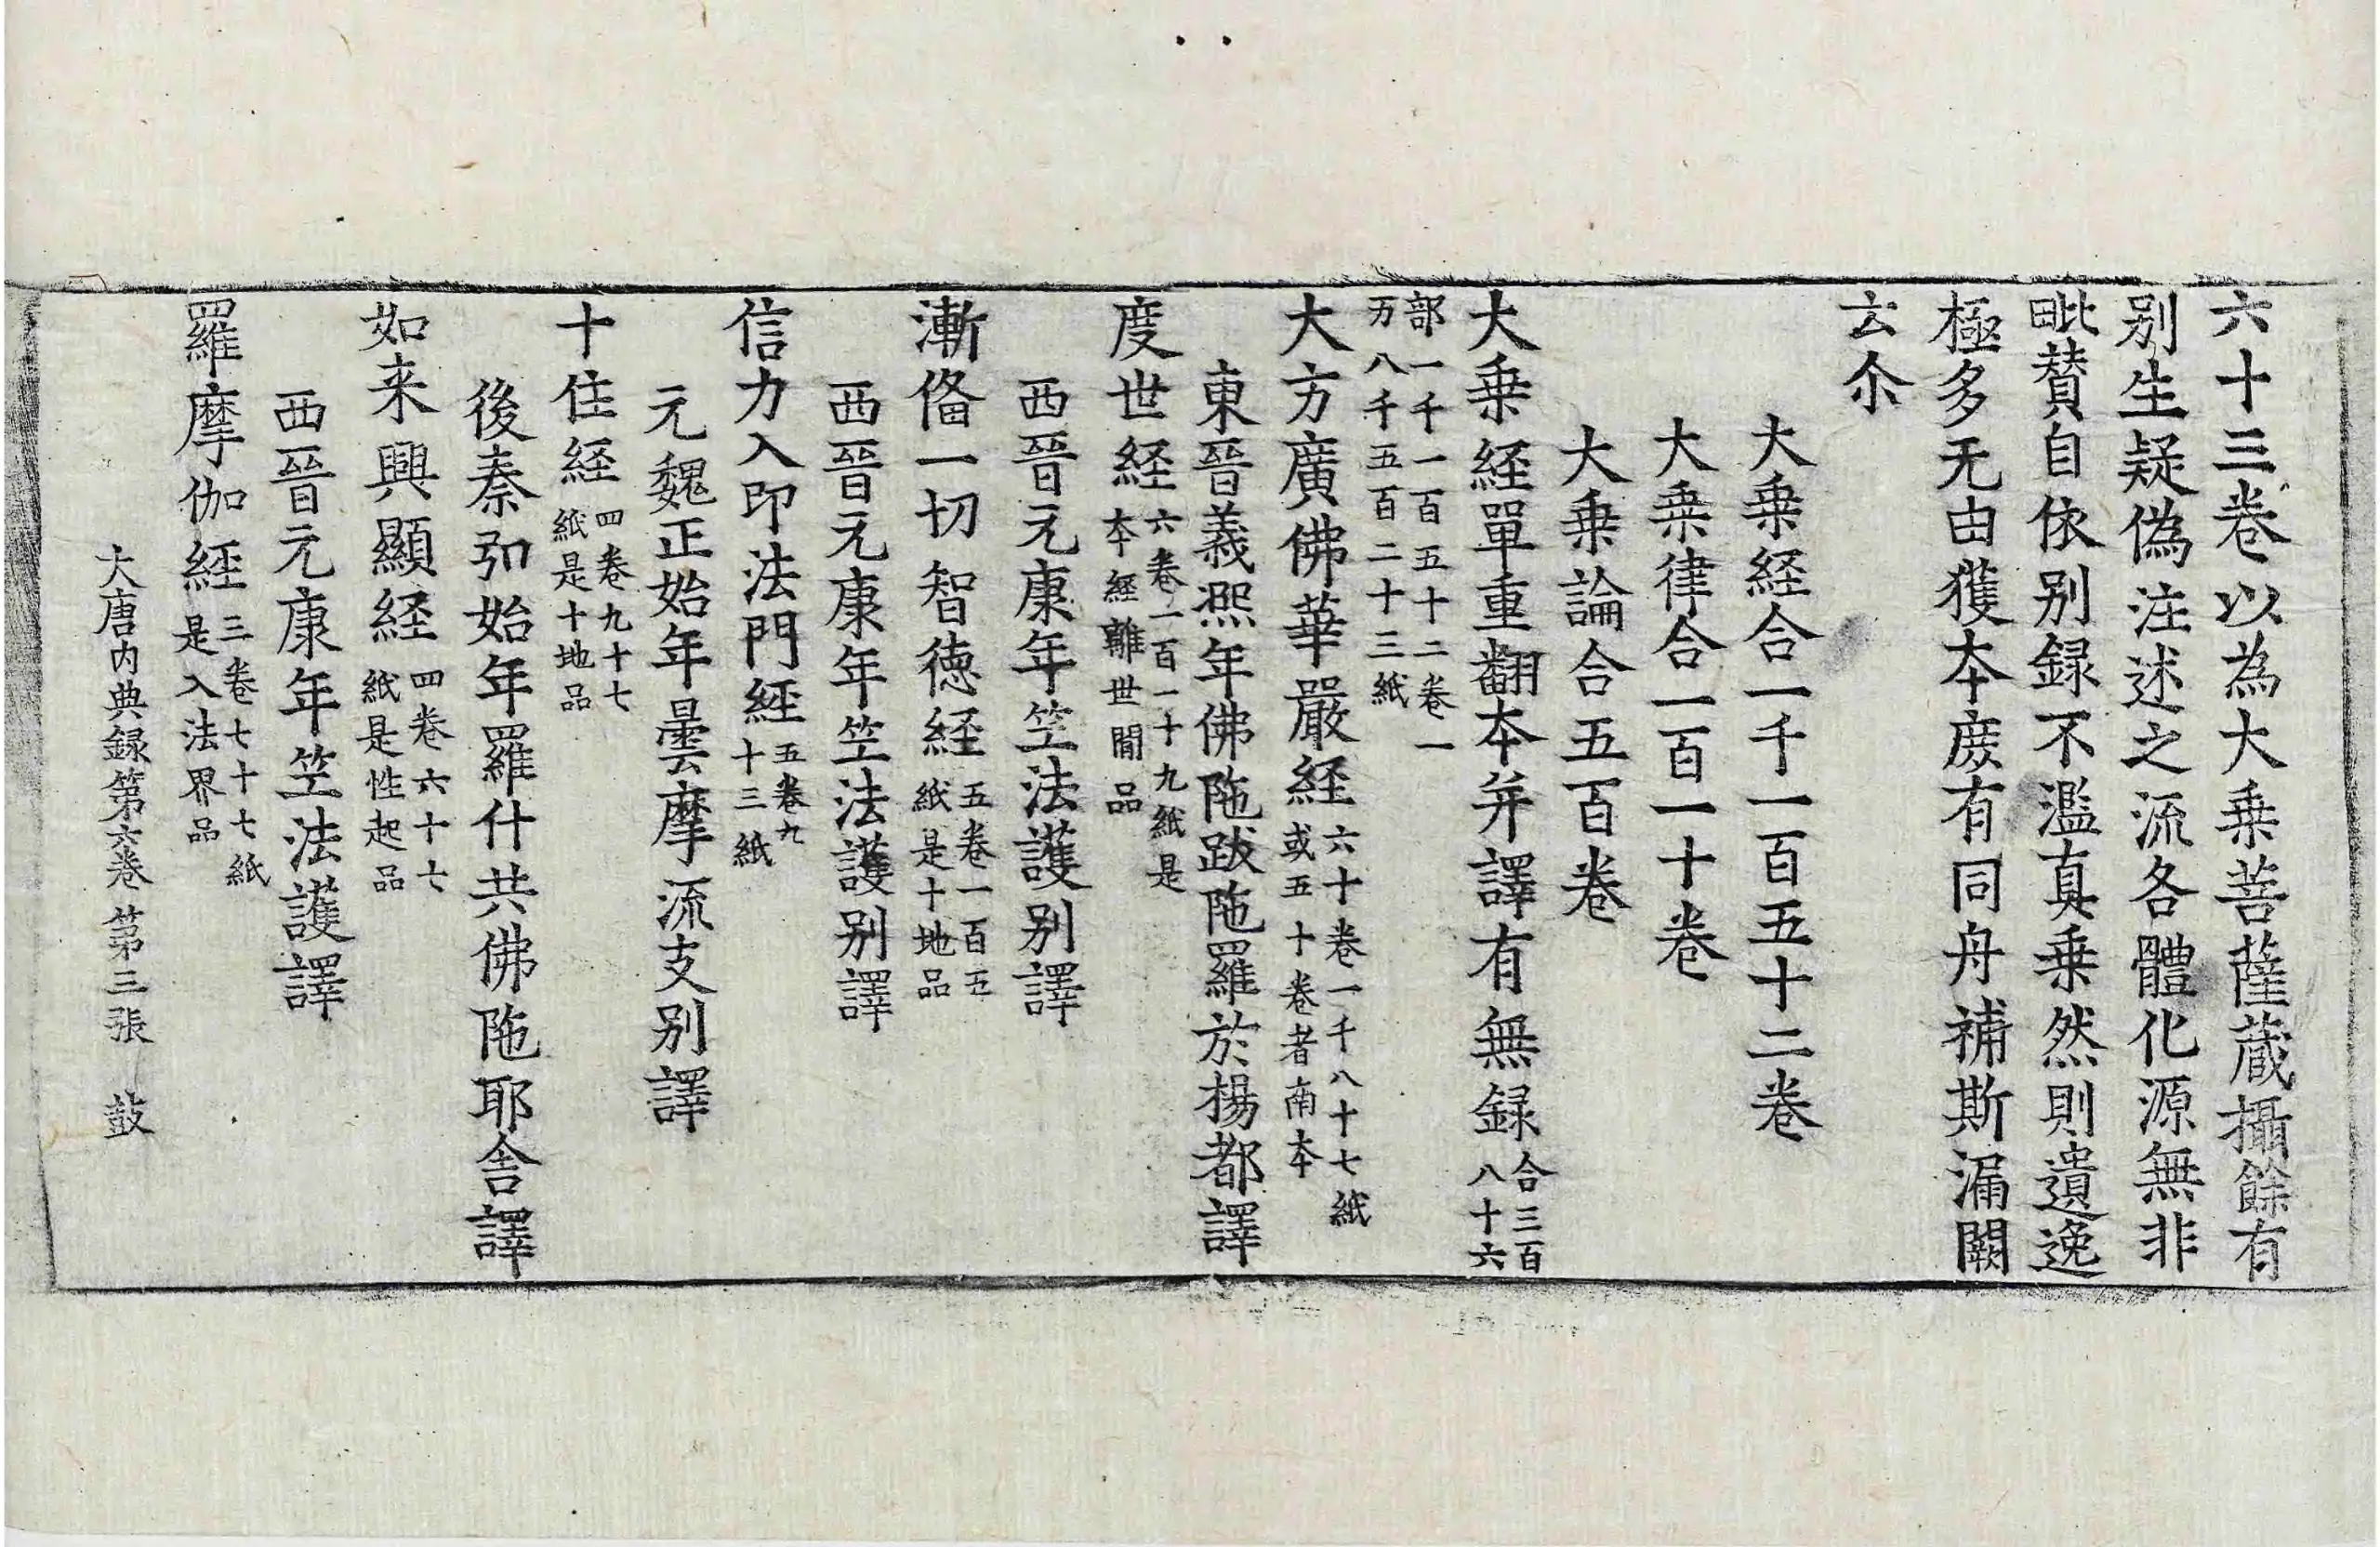 六十三卷以為大乗菩薩蔵攝餘有
别生疑偽注述之流各體化源無非
毗賛自依别録不濫真乗然則遺逸
極多无由獲本庻有同舟補斯漏闕
云尒
大乗経合一千一百五十二卷
大乗律合一百一十卷
大乗論合五百卷
大乗経單重翻本并譯有無録合三百八十六
部一千一百五十二卷一万八千五百二十三紙
大方廣佛華嚴経六十卷一千八十七紙或五十卷者南本
東晉義熈年佛陁跋陁羅於楊都譯
度世経六卷一百一十九紙是本經離世間品
西晉元康年笁法護别譯
漸俻一切智徳経五卷一百五紙是十地品
西晉元康年笁法護别譯
信力入印法門経五卷九十三紙
元魏正始年曇摩流支别譯
十住経四卷九十七紙是十地品
後秦弘始年羅什共佛陁耶舍譯
如来興顯経四卷六十七紙是性起品
西晉元康年笁法護譯
羅摩伽経三卷七十七紙是入法界品
大唐内典録第六卷 第三張 鼓